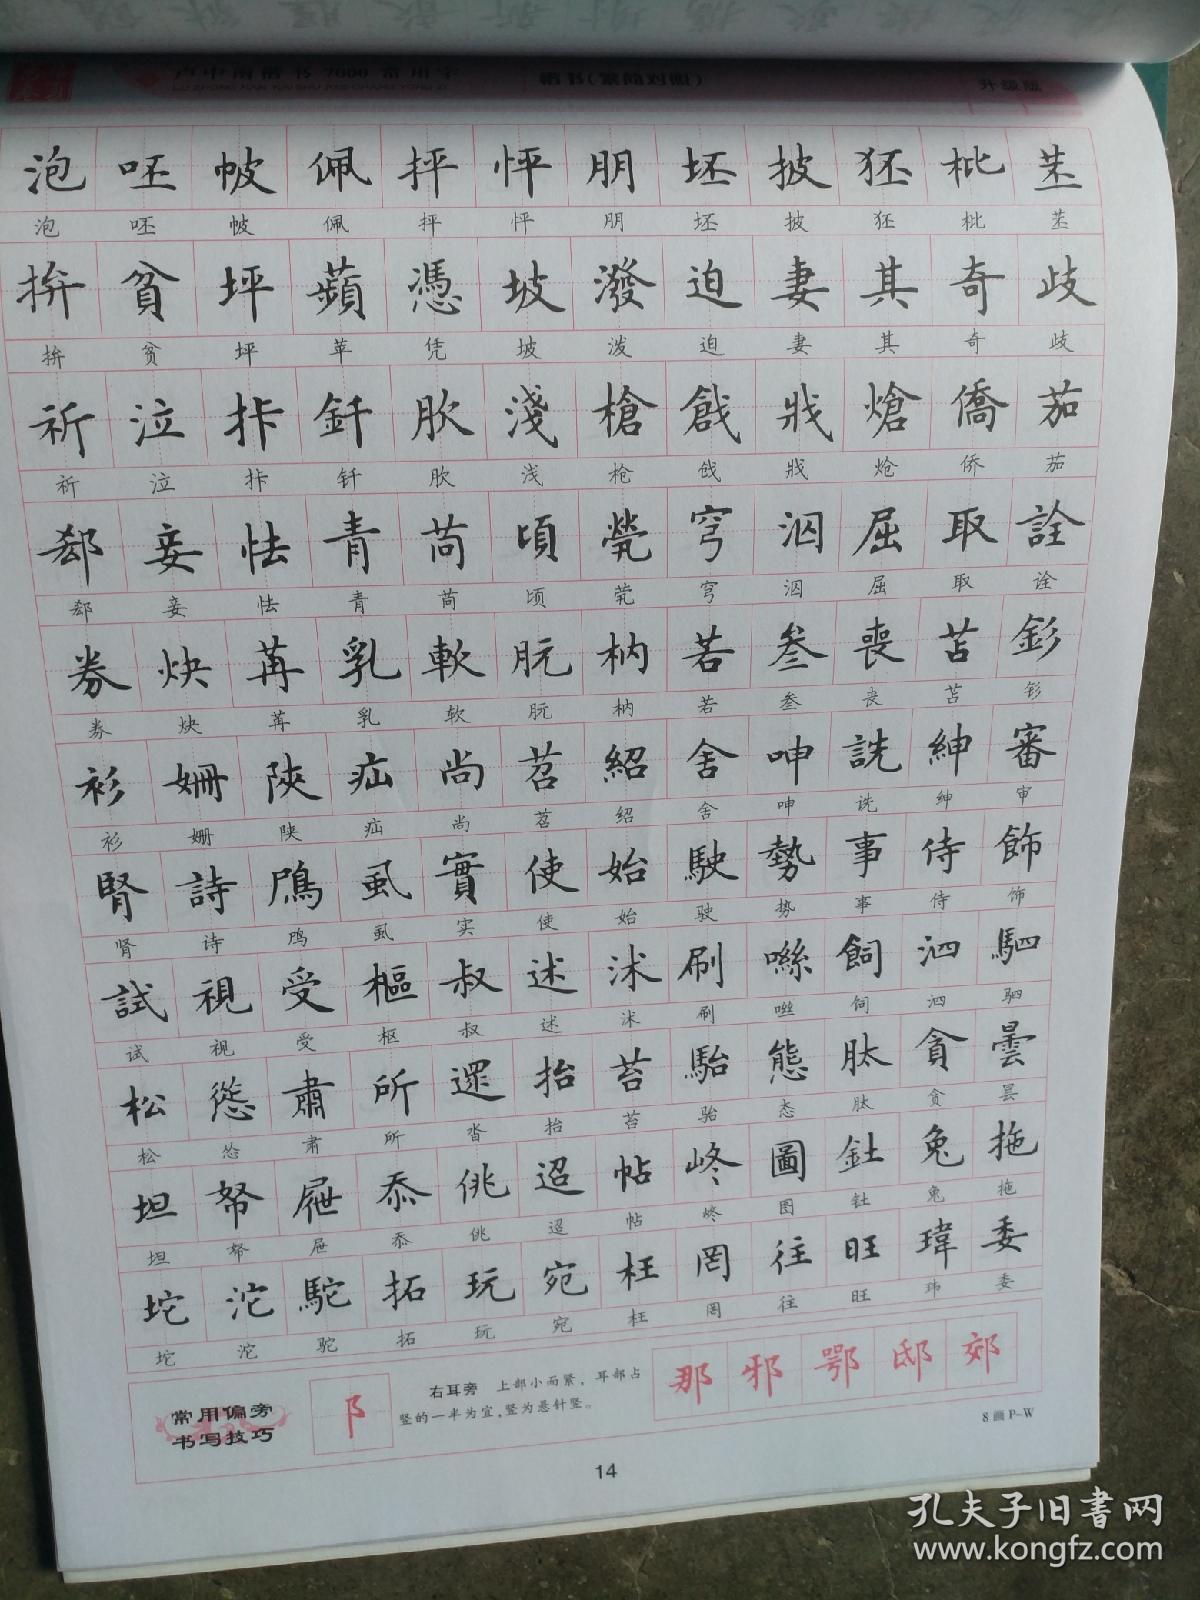 卢中南楷书7000常用字 楷书(繁简对照) 升级版
泡呸帔佩抨怦朋坯披狉枇苤
泡呸帔佩抨怦朋坯披狉枇苤
拚貧坪蘋憑坡潑迫妻其奇歧
拚贫坪苹凭坡泼迫妻其奇歧
祈泣拤釺肷淺槍戧戕熗僑茄
祈泣拤钎肷浅枪戗戕炝侨茄
郄妾怯青苘頃煢穹泅屈取詮
郄妾怯青苘顷茕穹泅屈取诠
券炔苒乳軟朊枘若叁喪苫釤
券炔苒乳软朊枘若叁丧苫钐
衫姗陝疝尚苕紹舍呻詵紳審
衫姗陕疝尚苕绍舍呻诜绅审
腎詩鳲虱實使始駛勢事侍飾
肾诗鸤虱实使始驶势事侍饰
試視受樞叔述沭刷噝飼泗駟
试视受枢叔述沭刷咝饲泗驷
松慫肅所遝抬苔駘態肽貪曇
松怂肃所沓抬苔骀态肽贪昙
坦帑屜忝佻迢帖峂圖釷兔拖
坦帑屉忝佻迢帖峂图钍兔拖
坨沱駝拓玩宛枉罔往旺瑋委
坨沱驼拓玩宛枉罔往旺玮委
常用偏旁
书写技巧
阝
右耳旁 上部小而紧，耳部占
竖的一半为宜，竖为悬针竖。
那邪鄂邸郊
8画P-W
14
孔夫子旧书网
www.kongfz.com